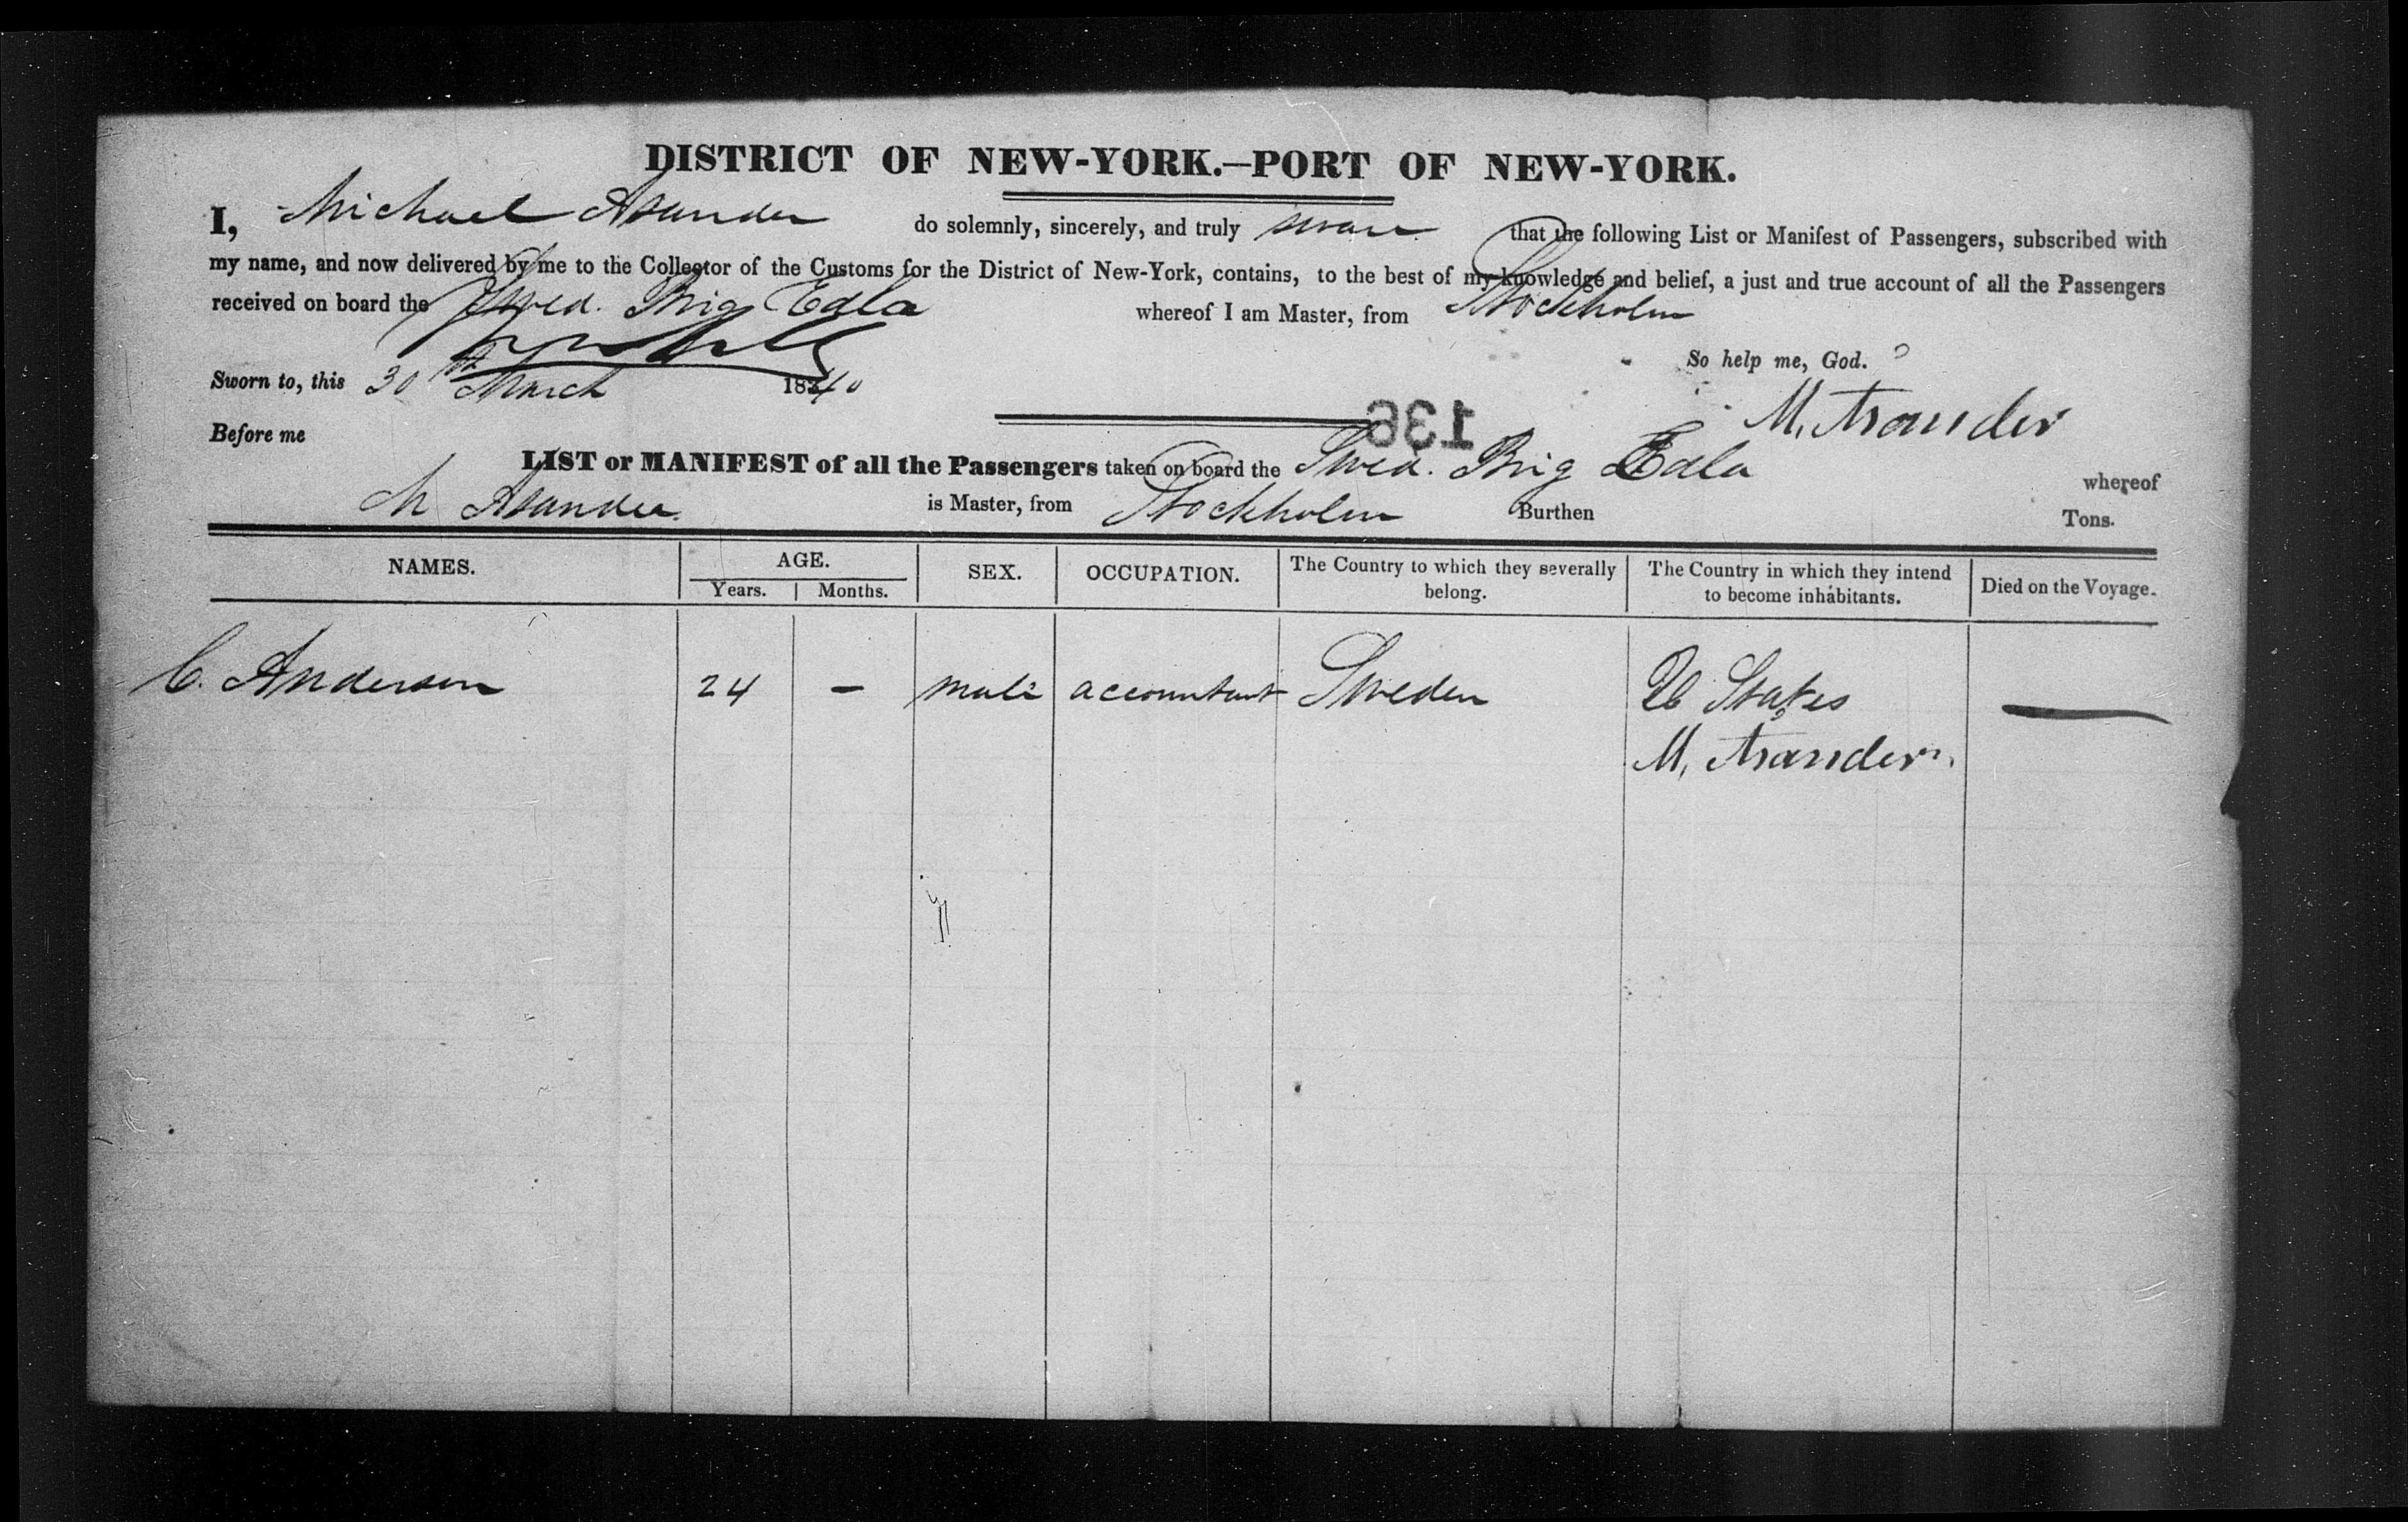 DISTRICT OF NEW-YORK.—PORT OF NEW-YORK.
I, Michael Asander do solemnly, sincerely, and truly swear that the following List or Manifest of Passengers, subscribed with
my name, and now delivered by me to the Collector of the Customs for the District of New-York, contains, to the best of my knowledge and belief, a just and true account of all the Passengers
received on board the Swed. Brig Edla whereof I am Master, from Stockholm
So help me, God.
Sworn to, this 30th March 1840
M, Asander
136
Before me
LIST or MANIFEST of all the Passengers taken on board the Swed. Brig Edla whereof
M Asander is Master, from Stockholm Burthen Tons.
NAMES. AGE. SEX. OCCUPATION. The Country to which they severally belong. The Country in which they intend to become inhabitants. Died on the Voyage.
Years. Months.
C. Anderson 24 — male accountant Sweden U States —
M, Asander